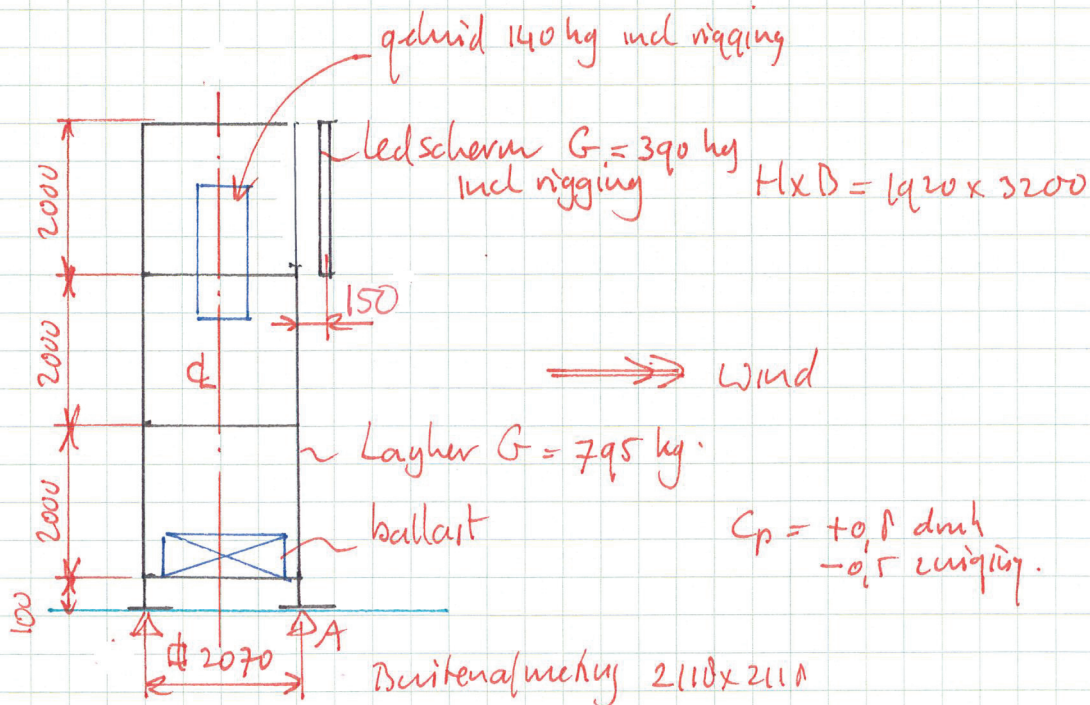 geluid 140 kg incl rigging
Ledscherm G = 390 kg
incl rigging
H x B = 1920 x 3200
2000
150
2000
⊄
wind
Layher G = 795 kg.
2000
ballast
Cp = +0,8 druk
-0,5 zuiging.
100
A
2070
Buitenafmeting 2118 x 2118